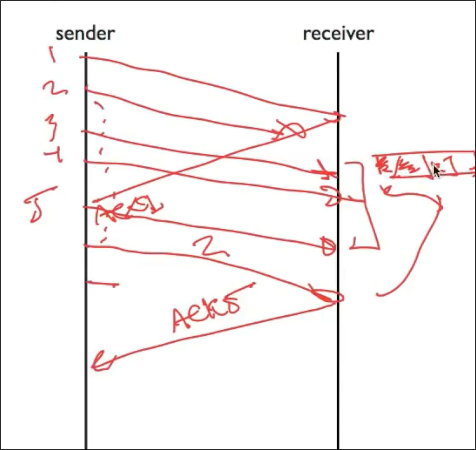 sender receiver
1
2
3
4
5
ACK2
2
ACK5